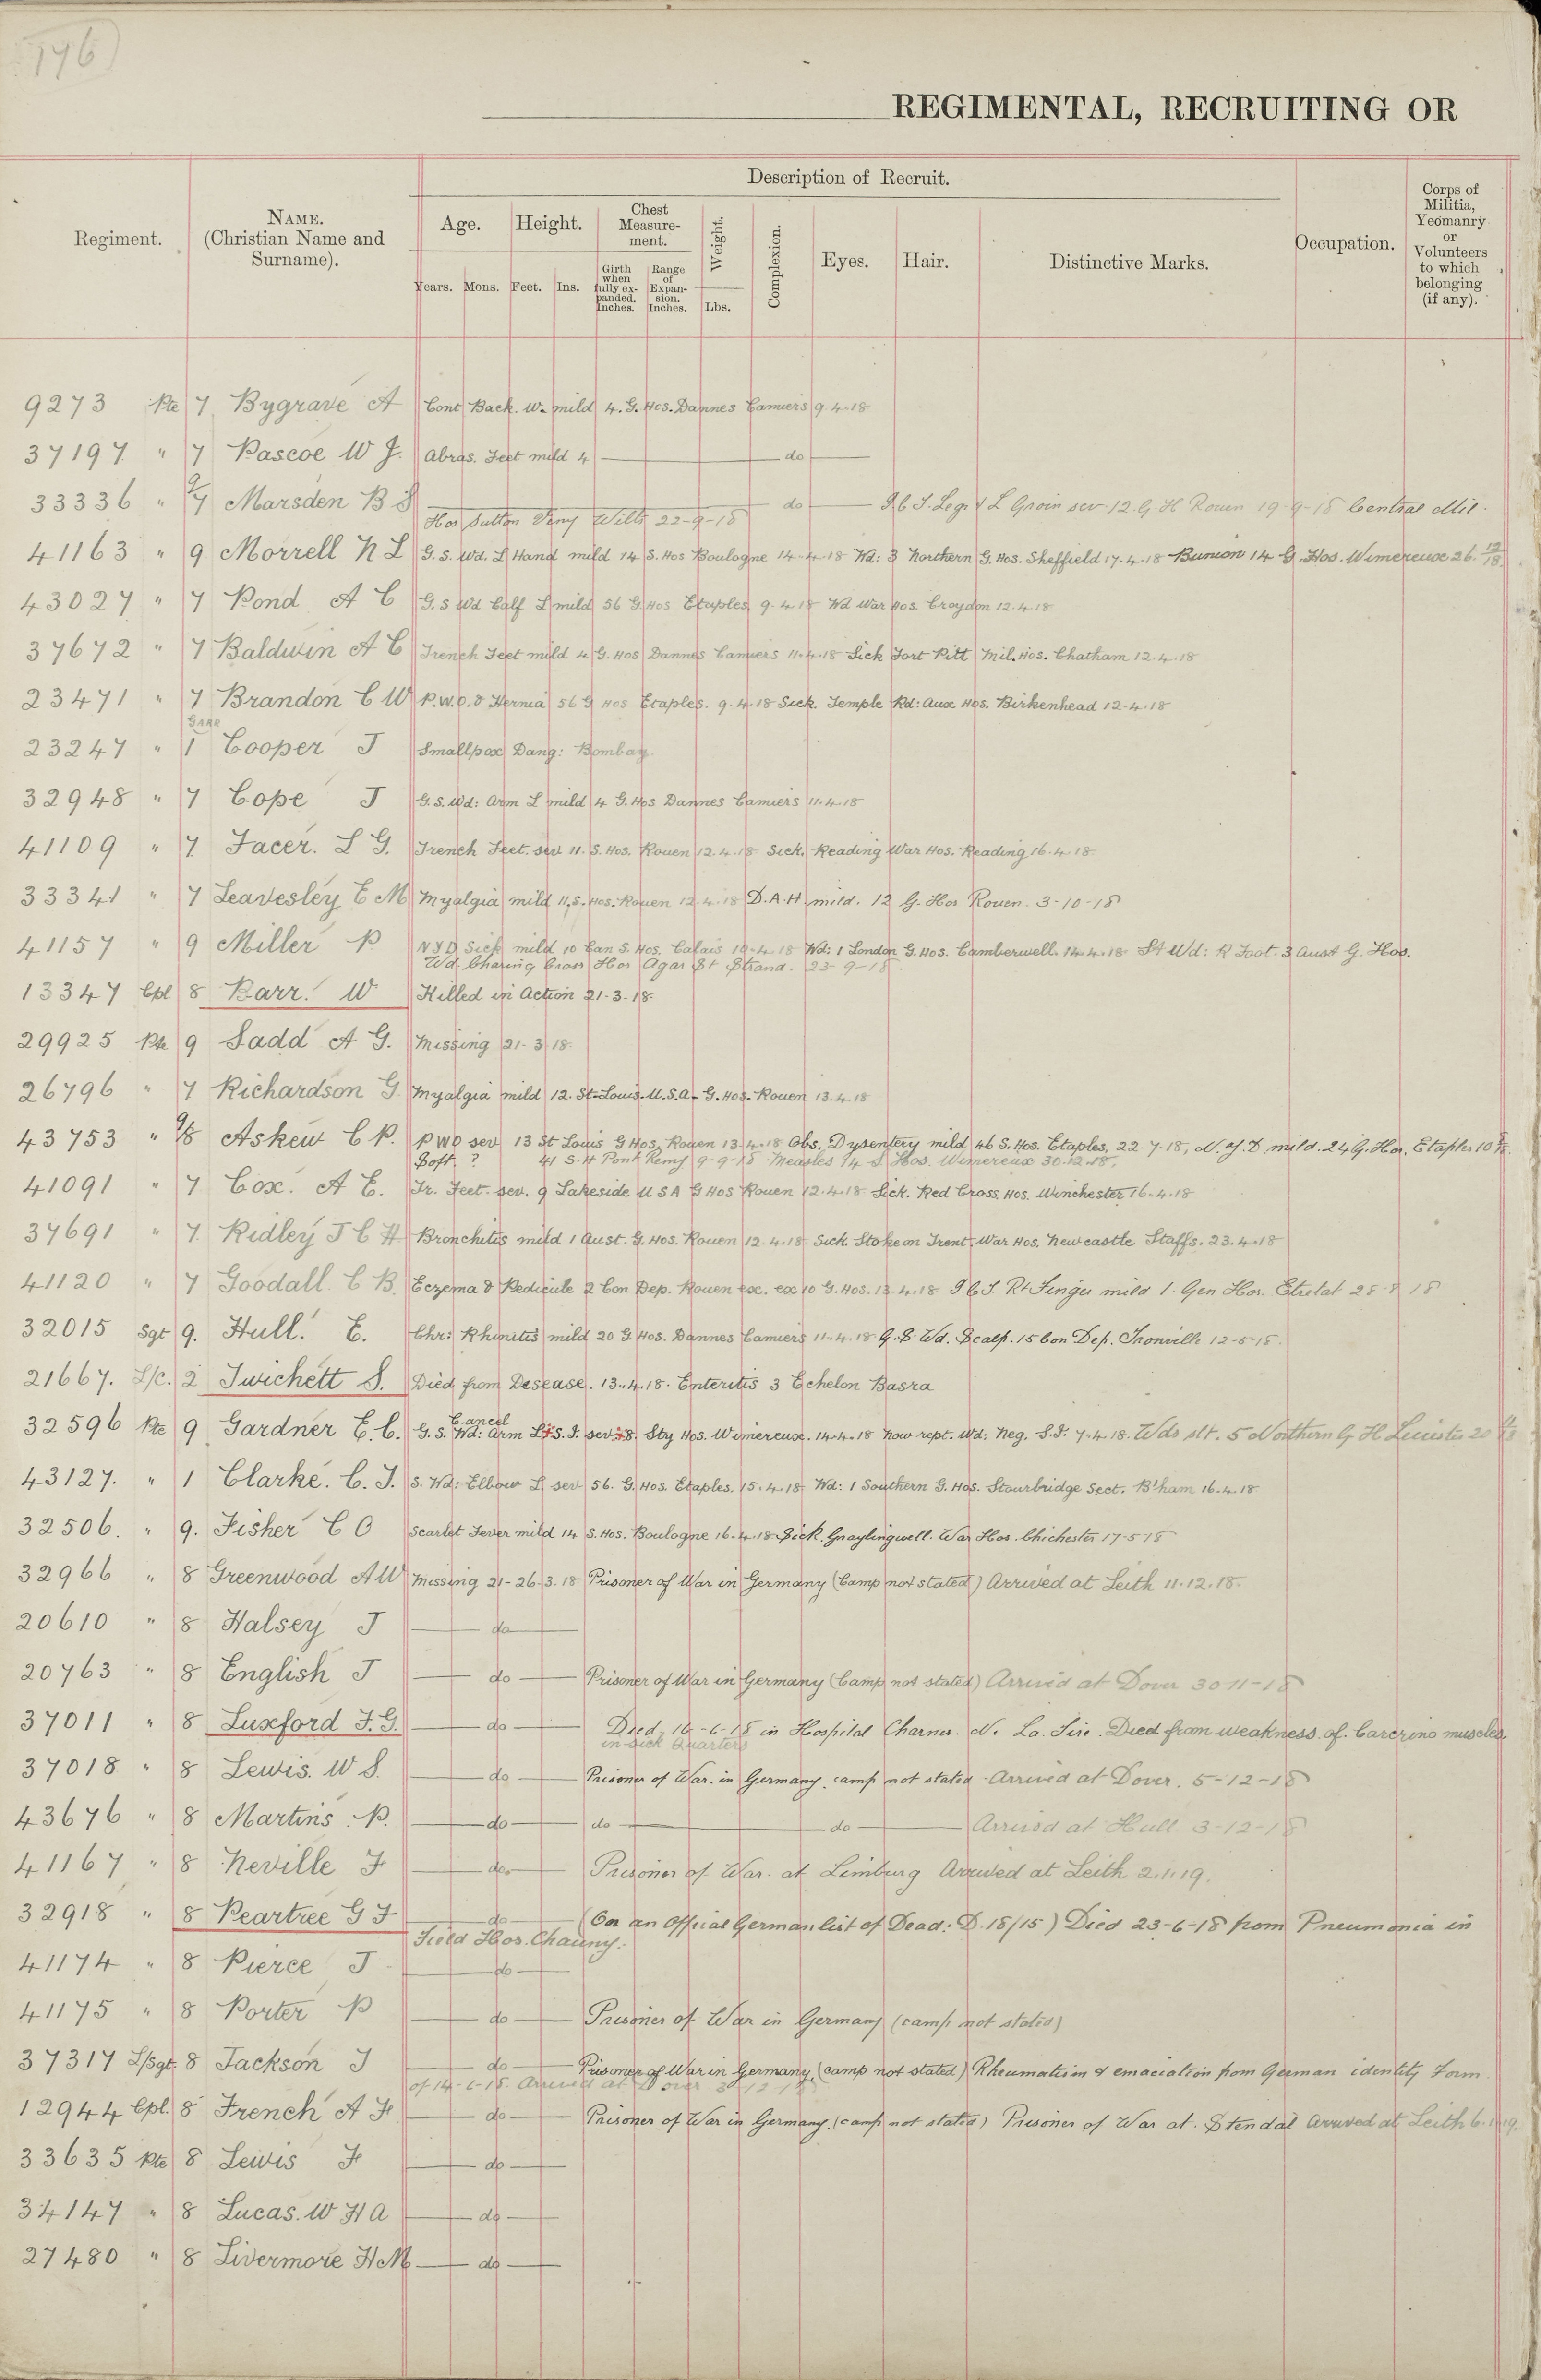 146
REGIMENTAL, RECRUITING OR
Regiment.
NAME.
(Christian Name and
Surname).
Description of Recruit.
Age.
Height.
Chest
Measure-
ment.
Weight.
Complexion.
Eyes.
Hair.
Distinctive Marks.
Occupation.
Corps of
Militia,
Yeomanry
or
Volunteers
to which
belonging
(if any).
Years.
Mons.
Feet.
Ins.
Girth
when
fully ex-
panded.
Inches.
Range
of
Expan-
sion.
Inches.
Lbs.
9273 Pte 7 Bygrave A Cont Back. W. mild 4. G. Hos. Dannes Camiers 9.4.18
37197 " 7 Pascoe W J. Abras. Feet mild 4 do
33336 " 9/7 Marsden B S do I.C.T. Leg & L Groin sev 12. G. H Rouen 19-9-18 Central Mil.
Hos Sutton Veny Wilts 22-9-18
41163 " 9 Morrell N L G. S. Wd. L Hand mild 14 S. Hos Boulogne 14-4-18 Wd: 3 Northern G. Hos. Sheffield 17.4.18 Bunion 14 G. Hos. Wimereux 26.12/18
43027 " 7 Pond A C G. S Wd Calf L mild 56 G Hos Etaples 9-4-18 Wd War Hos. Croydon 12.4.18
37672 " 7 Baldwin A C Trench Feet mild 4 G. Hos Dannes Camiers 11.4.18 Sick Fort Pitt Mil. Hos. Chatham 12.4.18
23471 " 7 Brandon C W P.W.O. & Hernia 56 G Hos Etaples. 9.4.18 Sick. Temple Rd: Aux Hos. Birkenhead 12.4.18
23247 " 1 Garr Cooper J Smallpox Dang: Bombay
32948 " 7 Cope J G.S. Wd: Arm L mild 4 G. Hos Dannes Camiers 11.4.18
41109 " 7. Facer. L G. Trench Feet. sev 11. S. Hos. Rouen 12.4.18 Sick, Reading War Hos. Reading 16.4.18
33341 " 7 Leavesley E M Myalgia mild 11. S. Hos. Rouen 12.4.18 D.A.H mild. 12 G. Hos Rouen. 3-10-18
41157 " 9 Miller P N Y D Sick mild 10 Can S. Hos. Calais 10-4-18 Wd: 1 London G. Hos. Camberwell. 14.4.18 Sh Wd: R Foot. 3 Aust G. Hos.
Wd. Charing Cross Hos Agar St Strand. 23-9-18
13347 Cpl 8 Barr. W Killed in Action 21-3-18.
29925 Pte 9 Sadd A G. Missing 21-3-18.
26796 " 7 Richardson G Myalgia mild 12. St Louis. U.S.A. G. Hos. Rouen 13.4.18
43753 " 9/8 Askew C P. P W O sev 13 St Louis G Hos, Rouen 13.4.18 Obs. Dysentery mild 46 S. Hos. Etaples, 22.7.18, N.Y.D mild. 24 G. Hos. Etaples
Soft. ? 41 S. H Pont Remy 9-9-18 Measles 14 S. Hos. Wimereux 30.12.18.
41091 " 7 Cox. A E. Tr. Feet. sev. 9 Lakeside U S A G Hos Rouen 12.4.18 Sick. Red Cross, Hos. Winchester 16.4.18
37691 " 7. Ridley J C H Bronchitis mild 1 Aust. G. Hos. Rouen 12.4.18 Sick. Stoke on Trent. War Hos. Newcastle Staffs. 23.4.18
41120 " 7 Goodall. C B. Eczema & Pedicule 2 Con Dep. Rouen ex. ex 10 G. Hos. 13.4.18 I C T. Rt Finger mild 1. Gen Hos. Etretat 28 8 18
32015 Sgt 9. Hull. E. Chr: Rhinitis mild 20 G Hos. Dannes Camiers 11.4.18 G.S. Wd. Scalp. 15 Con Dep. Trouville 12-5-18.
21667. L/c. 2 Twichett S. Died from Disease. 13.4.18. Enteritis 3 Echelon Basra
Cancel
32596 Pte 9 Gardner E. C. G. S. Wd: Arm L & S.I. sev 8. Sty Hos. Wimereux. 14.4.18 now rept. Wd: Neg. S.I. 7.4.18. Wds slt. 5 Northern G H Leicester
43127. " 1 Clarke. C. J. S. Wd: Elbow L sev 56. G. Hos. Etaples. 15.4.18 Wd: 1 Southern G. Hos. Stourbridge Sect. B'ham 16.4.18
32506. " 9. Fisher C O Scarlet Fever mild 14 S. Hos. Boulogne 16.4.18 Sick. Graylingwell. War Hos. Chichester 17-5-18
32966 " 8 Greenwood A W Missing 21-26-3.18 Prisoner of War in Germany (Camp not stated) Arrived at Leith 11.12.18.
20610 " 8 Halsey J do
20763 " 8 English J do Prisoner of War in Germany (Camp not stated) Arrived at Dover 30 11-18
37011 " 8 Luxford F. G. do Died 16-6-18 in Hospital Charner. Died from weakness of muscles.
in Sick Quarters
37018 " 8 Lewis. W S. do Prisoner of War. in Germany. camp not stated Arrived at Dover. 5-12-18
43676 " 8 Martins. P. do do do Arrived at Hull. 3-12-18
41167 " 8 Neville F do Prisoner of War. at Limburg Arrived at Leith 2.1.19.
32918 " 8 Peartree G F do (On an Official German list of Dead: D. 18/15) Died 23-6-18 from Pneumonia in
Field Hos. Chauny.
41174 " 8 Pierce J do
41175 " 8 Porter P do Prisoner of War in Germany (camp not stated)
37317 L/Sgt. 8 Jackson J do Prisoner of War in Germany, (camp not stated) Rheumatism & emaciation from German identity Form
of 14-6-18. Arrived at Dover
12944 Cpl. 8 French A F do Prisoner of War in Germany. (camp not stated) Prisoner of War at. Stendal Arrived at Leith 6.1.19.
33635 Pte 8 Lewis F do
34147 " 8 Lucas. W H A do
27480 " 8 Livermore H M do